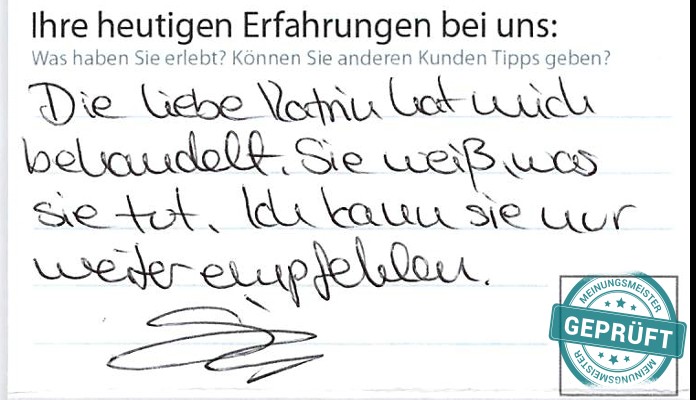 Ihre heutigen Erfahrungen bei uns:
Was haben Sie erlebt? Können Sie anderen Kunden Tipps geben?
Die liebe Katrin hat mich
behandelt. Sie weiß, was
sie tut. Ich kann sie nur
weiter empfehlen.
MEINUNGSMEISTER
GEPRÜFT
MEINUNGSMEISTER